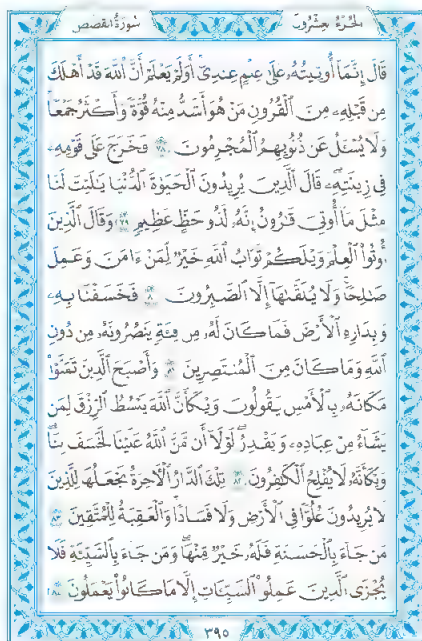 الجزء العشرون سورة القصص
قَالَ إِنَّمَآ أُوتِيتُهُۥ عَلَىٰ عِلْمٍ عِندِىٓ أَوَلَمْ يَعْلَمْ أَنَّ ٱللَّهَ قَدْ أَهْلَكَ
مِن قَبْلِهِۦ مِنَ ٱلْقُرُونِ مَنْ هُوَ أَشَدُّ مِنْهُ قُوَّةً وَأَكْثَرُ جَمْعًا
وَلَا يُسْـَٔلُ عَن ذُنُوبِهِمُ ٱلْمُجْرِمُونَ ٧٨ فَخَرَجَ عَلَىٰ قَوْمِهِۦ
فِى زِينَتِهِۦ قَالَ ٱلَّذِينَ يُرِيدُونَ ٱلْحَيَوٰةَ ٱلدُّنْيَا يَٰلَيْتَ لَنَا
مِثْلَ مَآ أُوتِىَ قَٰرُونُ إِنَّهُۥ لَذُو حَظٍّ عَظِيمٍ ٧٩ وَقَالَ ٱلَّذِينَ
أُوتُوا۟ ٱلْعِلْمَ وَيْلَكُمْ ثَوَابُ ٱللَّهِ خَيْرٌ لِّمَنْ ءَامَنَ وَعَمِلَ
صَٰلِحًا وَلَا يُلَقَّىٰهَآ إِلَّا ٱلصَّٰبِرُونَ ٨٠ فَخَسَفْنَا بِهِۦ
وَبِدَارِهِ ٱلْأَرْضَ فَمَا كَانَ لَهُۥ مِن فِئَةٍ يَنصُرُونَهُۥ مِن دُونِ
ٱللَّهِ وَمَا كَانَ مِنَ ٱلْمُنتَصِرِينَ ٨١ وَأَصْبَحَ ٱلَّذِينَ تَمَنَّوْا۟
مَكَانَهُۥ بِٱلْأَمْسِ يَقُولُونَ وَيْكَأَنَّ ٱللَّهَ يَبْسُطُ ٱلرِّزْقَ لِمَن
يَشَآءُ مِنْ عِبَادِهِۦ وَيَقْدِرُ لَوْلَآ أَن مَّنَّ ٱللَّهُ عَلَيْنَا لَخَسَفَ بِنَا
وَيْكَأَنَّهُۥ لَا يُفْلِحُ ٱلْكَٰفِرُونَ ٨٢ تِلْكَ ٱلدَّارُ ٱلْءَاخِرَةُ نَجْعَلُهَا لِلَّذِينَ
لَا يُرِيدُونَ عُلُوًّا فِى ٱلْأَرْضِ وَلَا فَسَادًا وَٱلْعَٰقِبَةُ لِلْمُتَّقِينَ ٨٣
مَن جَآءَ بِٱلْحَسَنَةِ فَلَهُۥ خَيْرٌ مِّنْهَا وَمَن جَآءَ بِٱلسَّيِّئَةِ فَلَا
يُجْزَى ٱلَّذِينَ عَمِلُوا۟ ٱلسَّيِّـَٔاتِ إِلَّا مَا كَانُوا۟ يَعْمَلُونَ ٨٤
٣٩٥